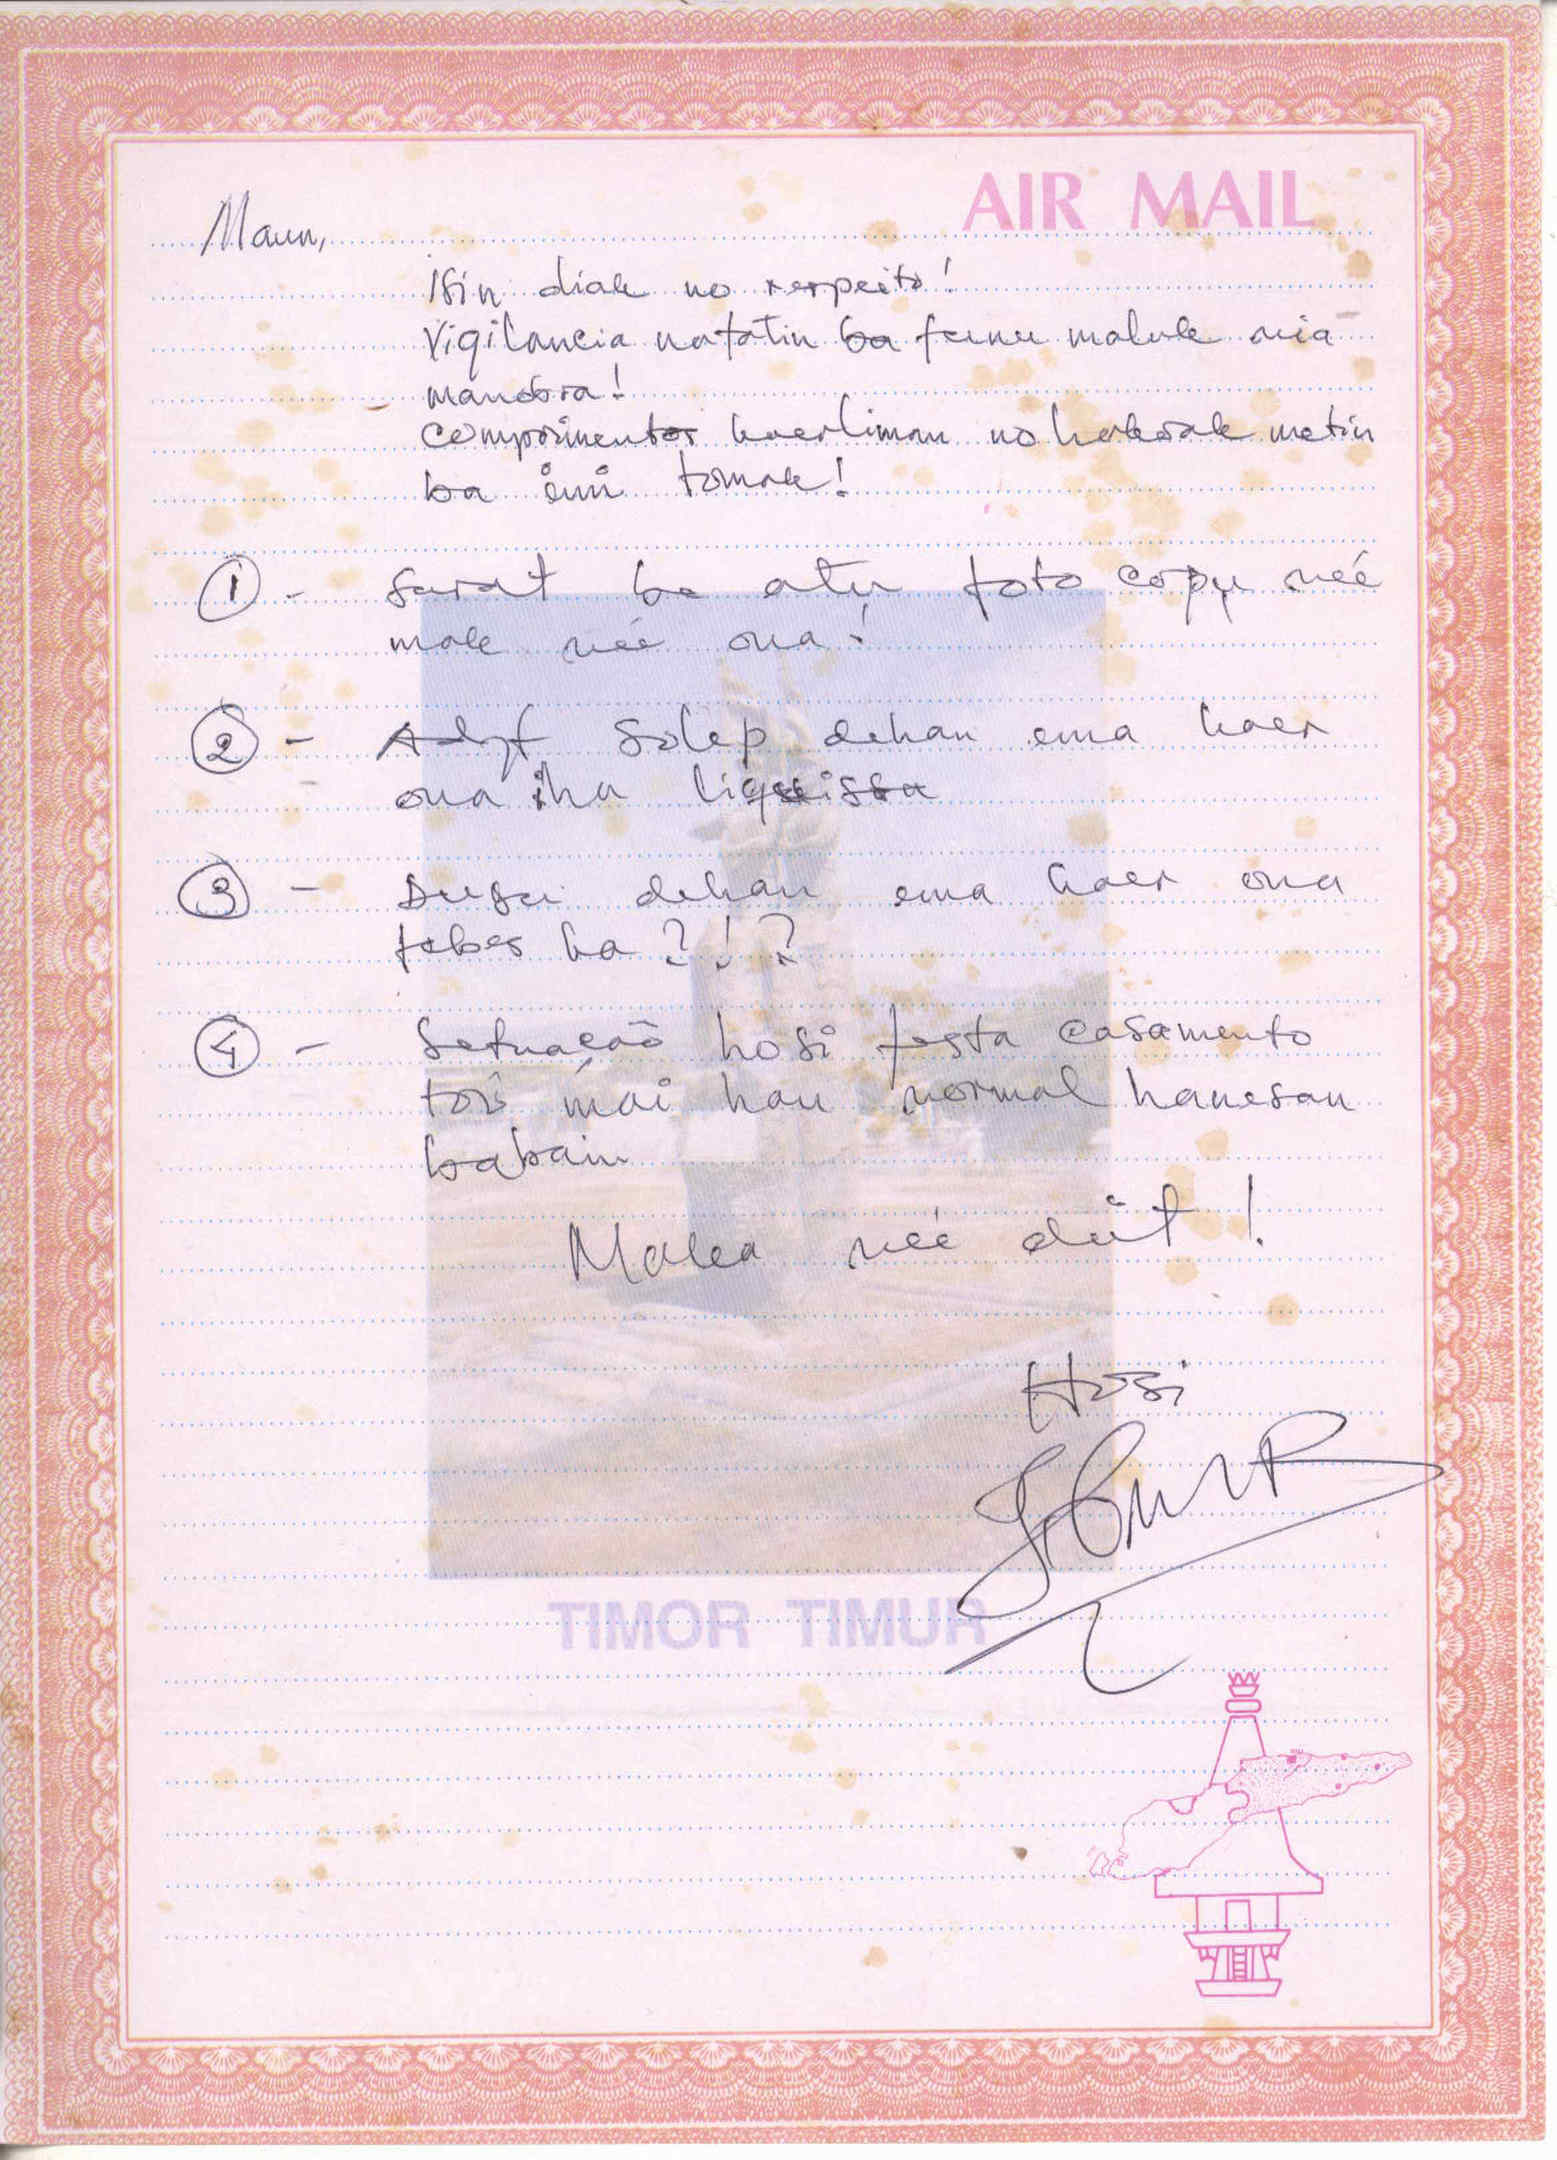 AIR MAIL
Maun,
Isin diak no respeito!
Vigilancia nafatin ba funu maluk nia
manobra!
comprimentos haerliman no hakerak metin
ba imi tomak!
1 - Surat ba atu foto copy neé
mak neé ona!
2 - Solep dehan ema kaer
ona iha liquissa
3 - dehan ema kaer ona
tebes ka?!?
4 - Setuação hosi festa casamento
to'o mai hau normal hanesan
babain
Maka neé deit!
Hosi
TIMOR TIMUR